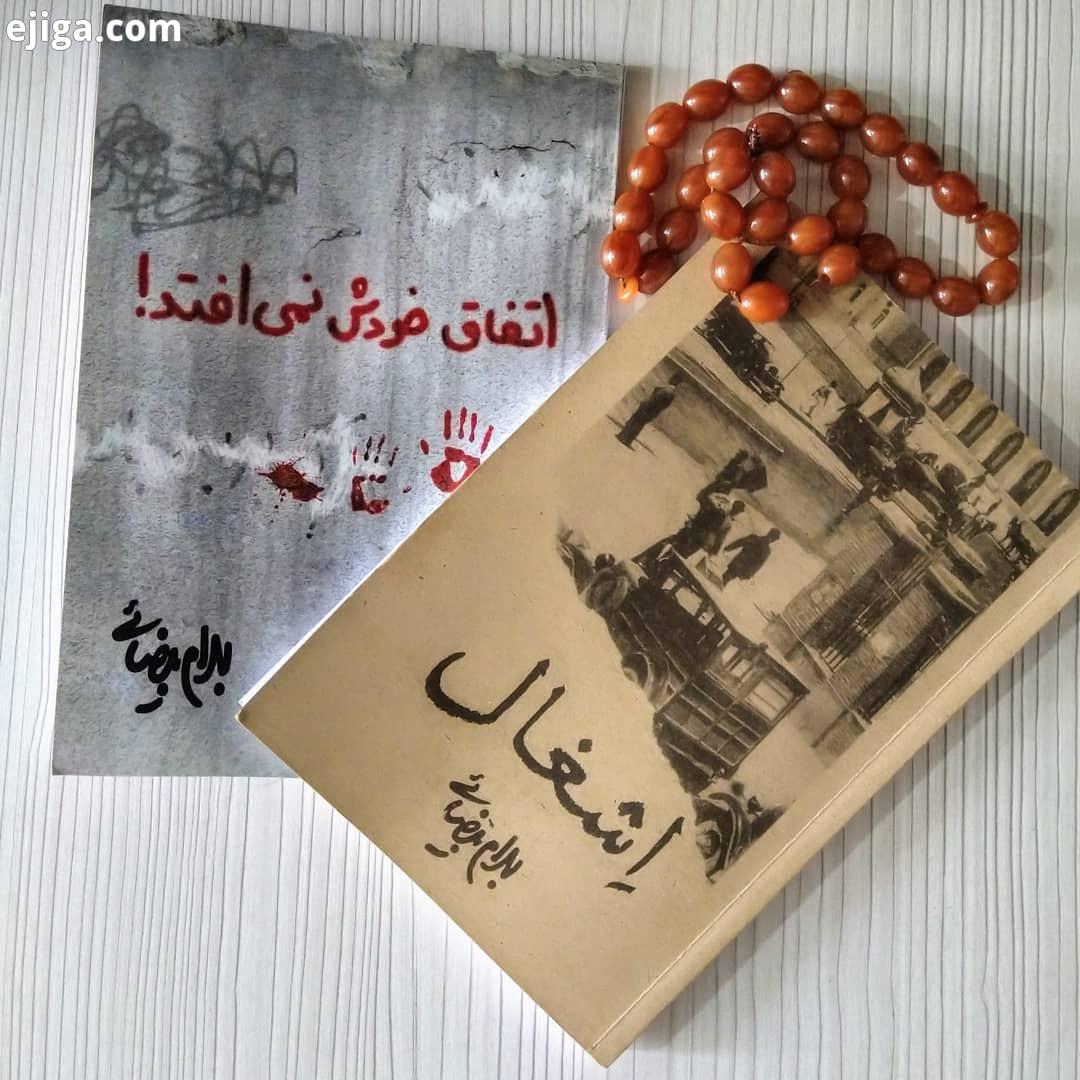 ejiga.com
اتفاق خودش نمی افتد!
بهرام بیضائی
اِشغال
بهرام بیضائی